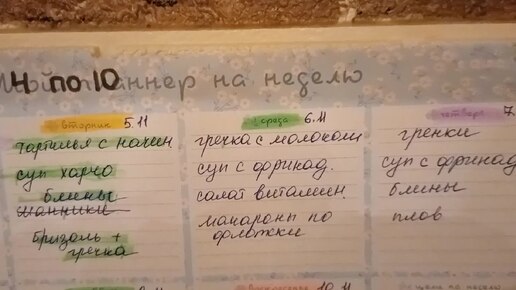 4 по 10
ннер на неделю
вторник 5.11
тортилья с начин
суп харчо
блины
манники
бризоль +
гречка
среда 6.11
гречка с молоком
суп с фрикад.
салат витамин.
макароны по
флотски
четверг 7
гренки
суп с фрикад
блины
плов
10.11